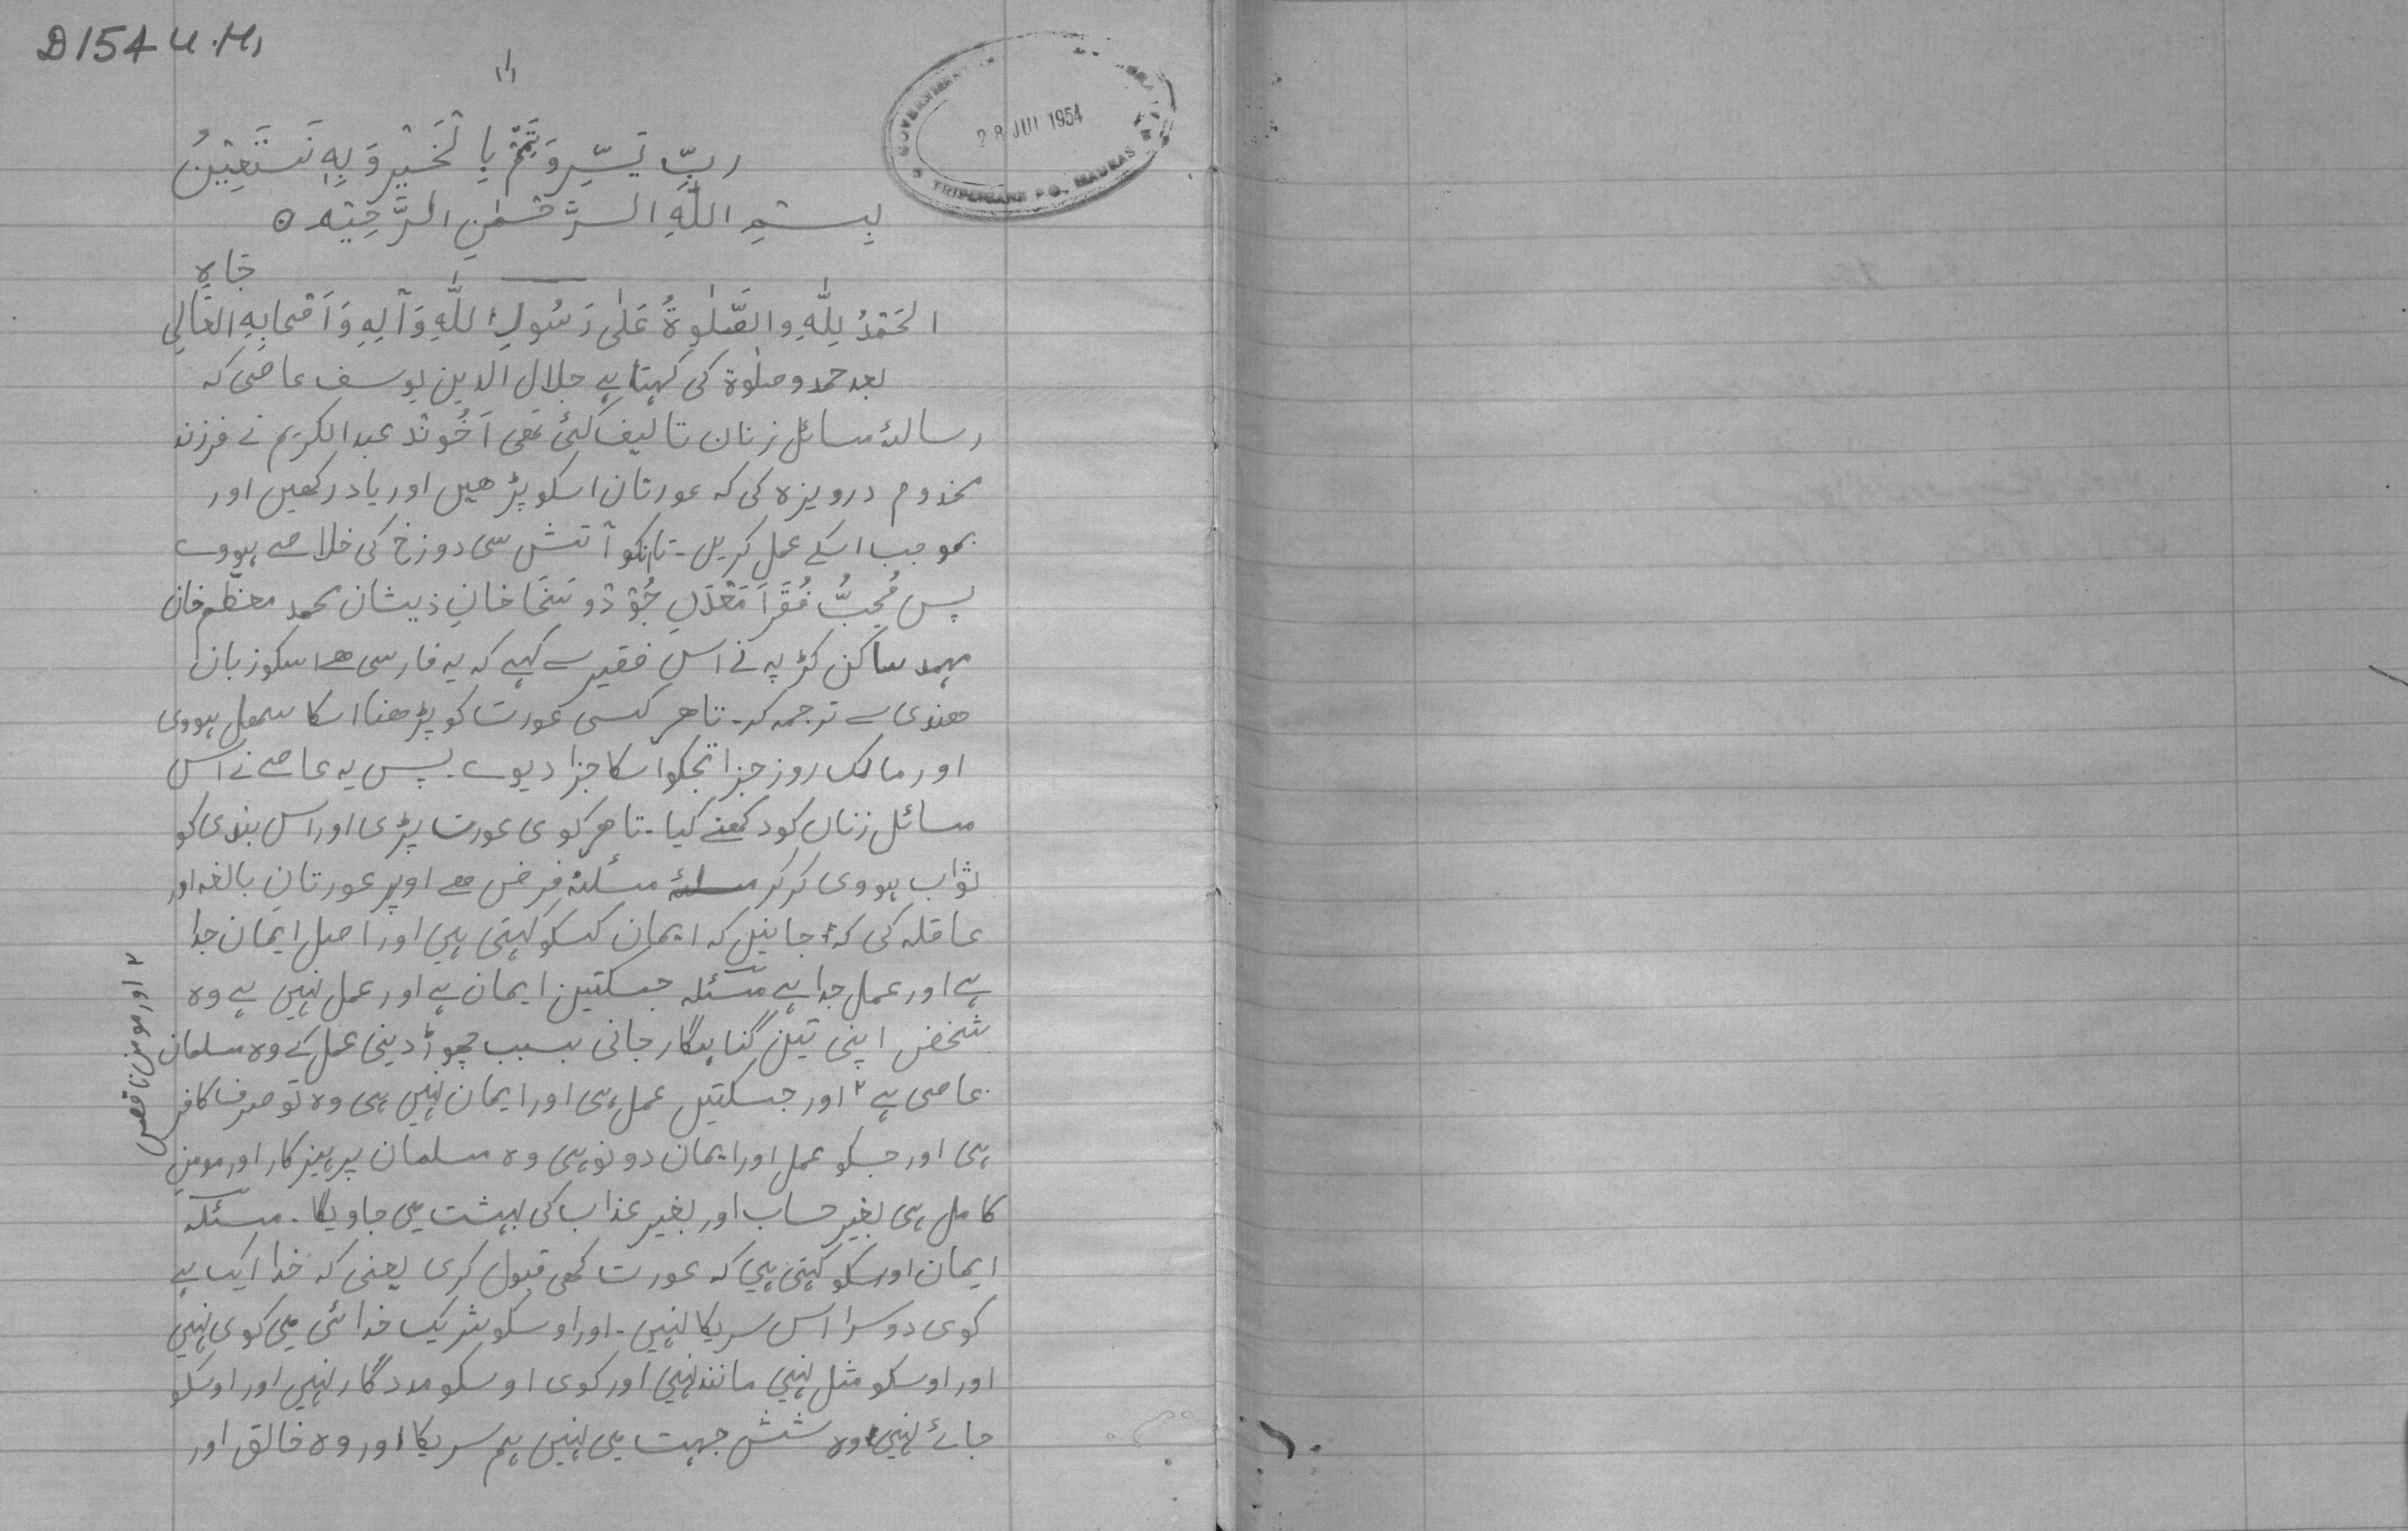 D154 U.H,
۱
رَبِّ یَسِّرْ وَتَمِّمْ بِالْخَیْرِ وَبِهٖ نَسْتَعِیْنُ
28 JUL 1954
TRIPLICANE P.O. MADRAS
بِسْمِ اللّٰهِ الرَّحْمٰنِ الرَّحِیْمِ ٥
جَاہِ
الحَمْدُ لِلّٰهِ والصَّلٰوةُ عَلٰى رَسُولِ اللّٰهِ وَآلِهٖ وَاَصْحَابِهِ العَالِي
بعد حمد و صلٰوة کی کہتا ہے جلال الدین یوسف عاصی کہ
رسالۂ مسائل زنان تالیف کئی تھی اَخُونْد عبدالکریم نے فرزند
مخدوم درویزہ کی کہ عورتان اسکو پڑھیں اور یاد رکھیں اور
بموجب اسکے عمل کریں۔ تا انکو آتش سی دوزخ کی خلاصے ہووے
پس مُحِبُّ فُقَرَا مَعْدَنِ جُوْدْ و سَخَا خانِ ذیشان محمد معظم خان
مہمد ساکن کڑپہ نے اس فقیر سے کہے کہ یہ فارسی ھے اسکو زبان
ھندی سے ترجمہ کر۔ تا ھر کسی عورت کو پڑھنا اسکا سھل ہووی
اور مالک روز جزا تجکو اسکا جزا دیوے۔ پس یہ عاصے نے اس
مسائل زنان کو دکھنے کیا۔ تا ھر کوی عورت پڑی اور اس بندی کو
ثواب ہووی کرکر مسئلۂ مسئلۂ فرض ھے اوپر عورتان بالغہ اور
عاقلہ کی کہ جانیں کہ ایمان کسکو کہتی ہیں اور اصل ایمان جدا
ہے اور عمل جدا ہے مسئلہ جسکتیں ایمان ہے اور عمل نہیں ہے وہ
شخض اپنی تیئں گناہگار جانی بسبب چھوڑ دینی عمل کے وہ مسلمان
عاصی ہے ۲ اور جسکتیں عمل ہی اور ایمان نہیں ہی وہ تو صرف کافر
۲ اور مومن ناقص
ہی اور جسکو عمل اور ایمان دونو ہی وہ مسلمان پرہیزکار اور مومن
کامل ہی بغیر حساب اور بغیر عذاب کی بہشت میں جاویگا۔ مسئلہ
ایمان اوسکو کہتی ہیں کہ عورت کھی قبول کری یعنی کہ خدا ایک ہے
کوی دوسرا اس سریکا نہیں۔ اور اوسکو شریک خدائی میں کوی نہیں
اور اوسکو مثل نہیں مانند نہیں اور کوی اوسکو مددگار نہیں اور اوسکو
جائے نہیں وہ شش جہت میں نہیں ہم سریکا اور وہ خالق اور